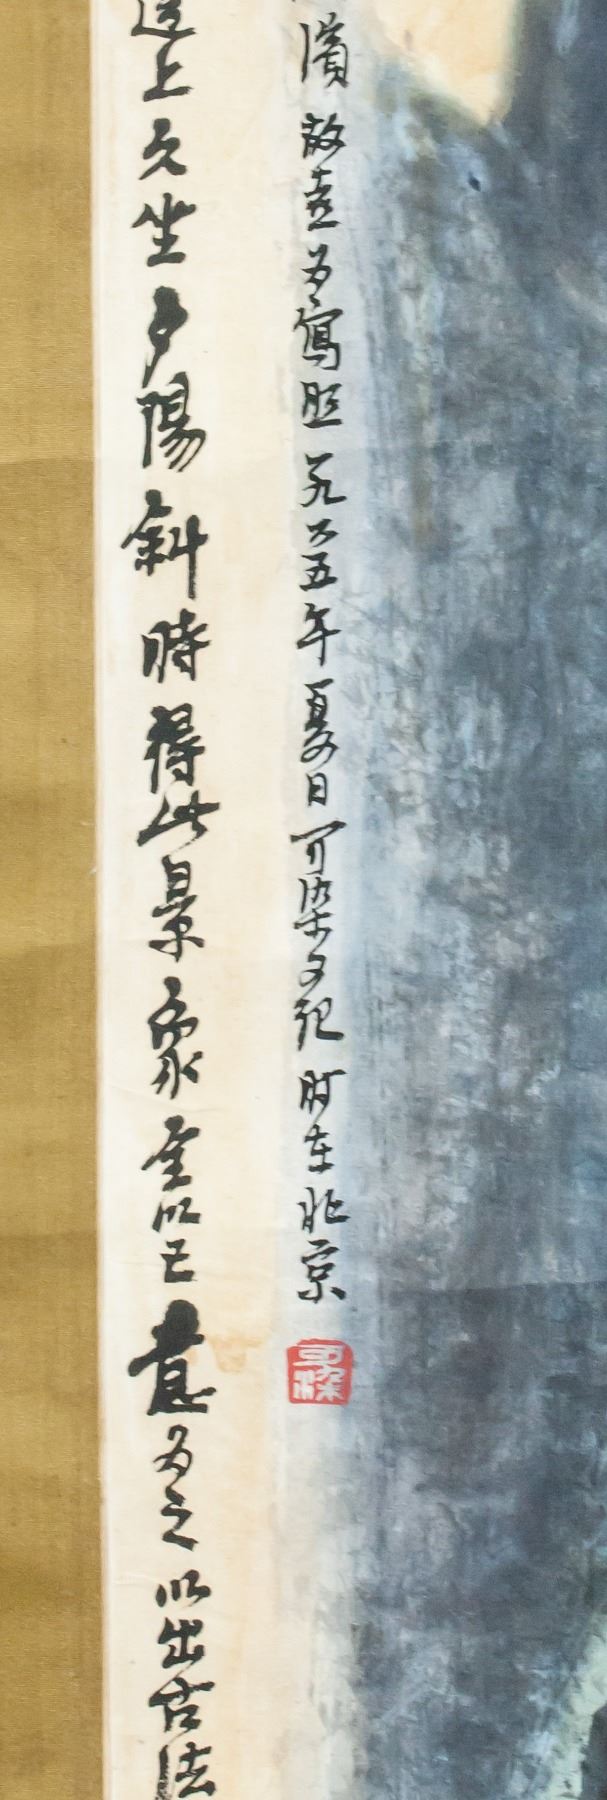 濱 放畫为寫照 一九六五年夏日 可染又記 时在北京
可染
道上久坐夕陽斜時得此景象 全以己意为之以出古法